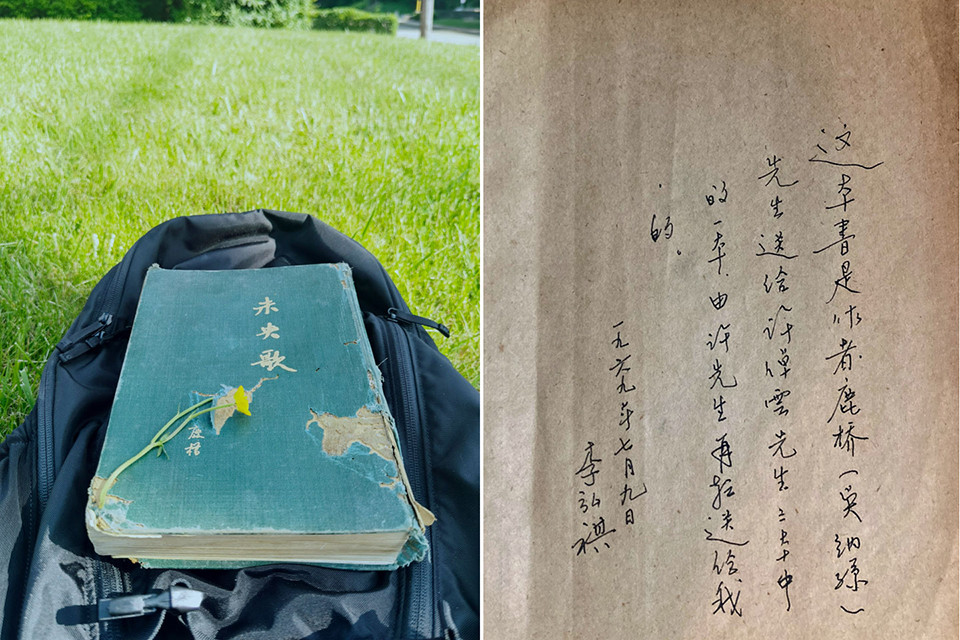 未央歌
鹿橋
这本書是作者鹿桥(吴纳孫)
先生送给许倬雲先生二本中
的一本,由许先生再转送给我
的。
一九六九年七月九日
李弘祺